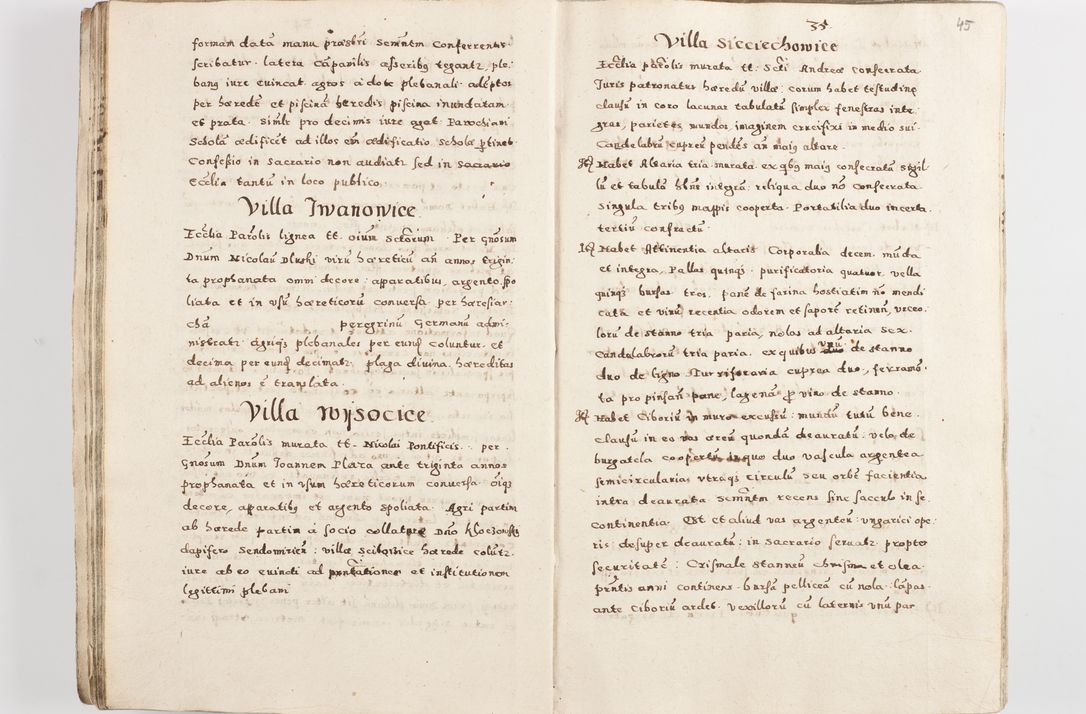 formam data manu præsbri Semẽntm Conferrentes
scribatur. latera cãpanilis asseribꝰ tegantz, ple:
banꝰ iure euincat agros à dote plebanali adeptos
per hæredẽ et piscinã heredis piscina inundatam
et prata. Simlr pro decimis iure agat Parochiani
Scholã ædificẽt ad illos eñ ædificatio scholæ ꝑtinet
Confessio in Sacrario non audiatr sed in Sacrario
Ecclia tantũ in loco publico.
Villa Iwanowice
Ecclia Parolis lignea tt. oium Sctorum Per Gnosum
Dnum Nicolaũ Dluski virũ hæreticũ añ annos trigin:
ta prophanata omni decore apparatibus, argento, spo
liata et in vsũ hæreticorũ conuersa per hæresiar:
chã peregrinũ Germanũ admi:
nistratz agriqꝫ plebanales per eunꝫ coluntur et
decima per eunꝫ decimatz. plaga diuina hæreditas
ad alienos ẽ translata.
Villa Wysocice
Ecclia Parolis murata tt. Nicolai Pontificis per
Gnosum Dnum Joannem Plaza ante triginta annos
prophanata et in vsum hæreticorum conuersa oiqꝫ
decore, apparatibꝰ et argento spoliata. Agri partim
ab hærede partim à socio collatore Dño
dapifero Sendomirien: villæ Sciborzice hærede coluntz.
iure ab eo euinci ad prntationem et institutionem
legittimi plebani
35
45
Villa Sieciechowice
Ecclia parolis murata tt. Scti Andreæ consecrata
Iuris patronatus hæredũ villæ. eorum habet testudine
clausũ in coro lacunar tabulatũ simplex fenestras inte
gras, parietes mundos imaginem crucifixi in medio sui
Candelabrũ cupreũ pendẽs añ maiꝰ altare.
Habet Altaria tria murata ex qbꝰ maiꝰ consecratũ sigil
lũ et tabulã hñs integrã: reliqua duo nõ consecrata.
Singula tribꝰ mappis cooperta. Portatilia duo incerta.
tertiũ confractũ.
Habet Attinentia altaris Corporalia decem. mũda
et integra, Pallas quinqꝫ. purificatoria quatuor. vella
quinqꝫ bursas tres, panẽ de farina hostiatim nõ mendi
catã et vinũ recentia odorem et saporẽ retinen, vrceo.
lorũ de stanno tria paria, nolas ad altaria sex.
Candelabrorũ tria paria. ex quibus vnũ duo de stanno
duo de ligno. Turriferaria cuprea duo, ferramẽ
ta pro pinsañ pane, lagenã ꝓ vino de stanno.
Habet Ciboriũ in muro excusũ: mundũ tutũ bene
clausũ in eo vas æreũ quondã deauratũ. velo de
burgatela coopertũ in quo duo vascula argentea
semicircularia vtraqꝫ circulũ seu orbẽ facientia
intra deaurata Semẽntm recens sine sacculo in se
continentia. Est et aliud vas argenteũ vngarici ope:
ris desuper deauratũ: in Sacrario seruatz propter
securitatẽ: Crismale Stanneũ chrisma et olea.
prntis anni continens. bursã pelliceã cũ nola. lãpas
ante Ciboriũ ardet. vexillorũ cũ laternis vnũ par